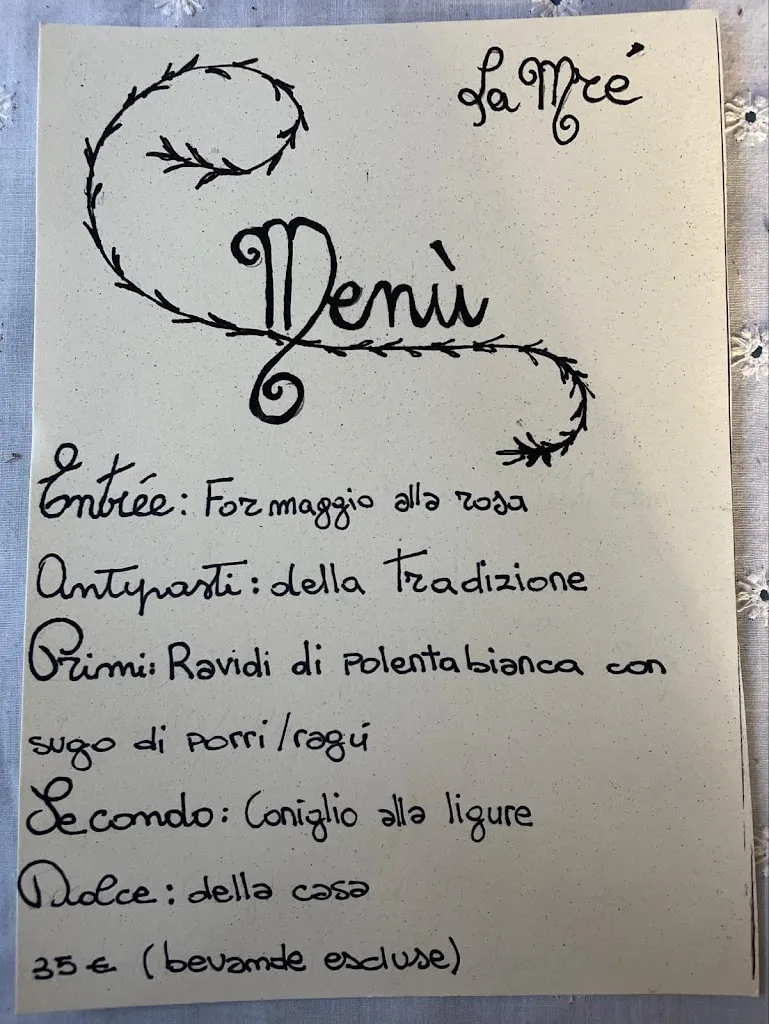 La Mré
Menù
Entrée: Formaggio alla rosa
Antipasti: della tradizione
Primi: Ravidi di polenta bianca con
sugo di porri/ragú
Secondo: Coniglio alla ligure
Dolce: della casa
35 € (bevande escluse)